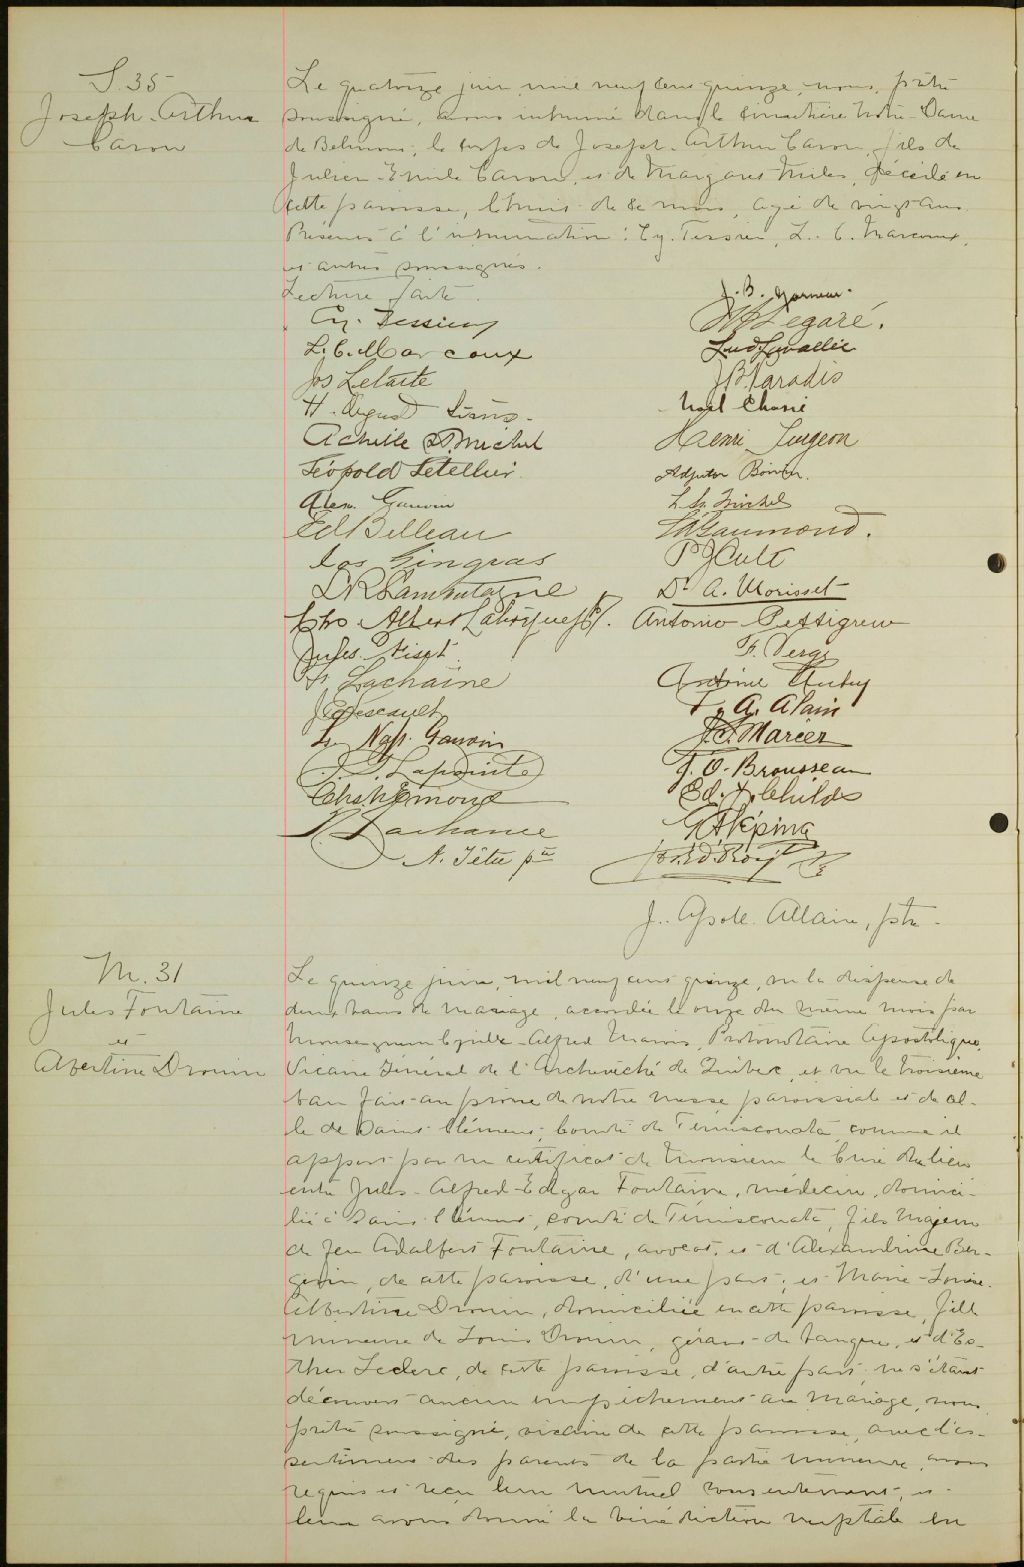 S. 35
Joseph-Arthur
Caron
Le quatorze juin mil neuf cent quinze, nous, prêtre
soussigné, avons inhumé dans le cimetière Notre-Dame
de Belmont, le corps de Joseph-Arthur Caron, fils de
Julien-Emile Caron, et de Margaret Miles, décédé en
cette paroisse, le huit de ce mois, agé de vingt ans
Présents à l'inhumation: Cy. Tessier, L. C. Marcoux,
et autres soussignés.
Lecture faite.
J. B.
Cy. Tessier
Légaré.
L. C. Marcoux
Lud. Lavallée
Jos Letarte
J. B. Paradis
H. August
Noel Chassé
Achille St. Michel
Henri Turgeon
Léopold Letellier
Adjutor Boivin
Alex. Gauvin
Ed Belleau
Gaumond.
Jos Gingras
P J Cull
Lamontagne
Dr A. Morisset
Albert
Antonio Pettigrew
Jules
F. Verge
Lachaine
Antoine Aubry
A. Alain
Nap. Gauvin
Mercier
Lapointe
J. O. Brousseau
Chs Emond
Ed. Childs
Lachance
A. Têtu ptre
J. Apoll. Allaire, ptre.
M. 31
Jules Fontaine
et
Albertine Drouin
Le quinze juin, mil neuf cent quinze, vu la dispense de
deux bans de mariage, accordée le onze du même mois par
Monseigneur Cyrille-Alfred Marois, Protonotaire Apostolique,
Vicaire Général de l'Archevêché de Québec, et vu le troisième
ban fait au prône de notre messe paroissiale et de cel-
le de Saint Clément, Comté de Témiscouata, comme il
appert par un certificat de Monsieur le Curé du lieu
entre Jules-Alfred-Edgar Fontaine, médecin, domici-
lié à Saint-Clément, comté de Témiscouata, fils majeur
de feu Adalbert Fontaine, avocat, et d'Alexandrine Ber-
gevin, de cette paroisse, d'une part; et Marie-Louise-
Albertine Drouin, domiciliée en cette paroisse, fille
mineure de Louis Drouin, gérant de banque, et d'Es-
ther Leclerc, de cette paroisse, d'autre part; ne s'étant
découvert aucun empêchement au mariage, nous,
prêtre soussigné, vicaire de cette paroisse, avec l'as-
sentiment des parents de la partie mineure, avons
requis et reçu leur mutuel consentement, et
leur avons donné la bénédiction nuptiale en